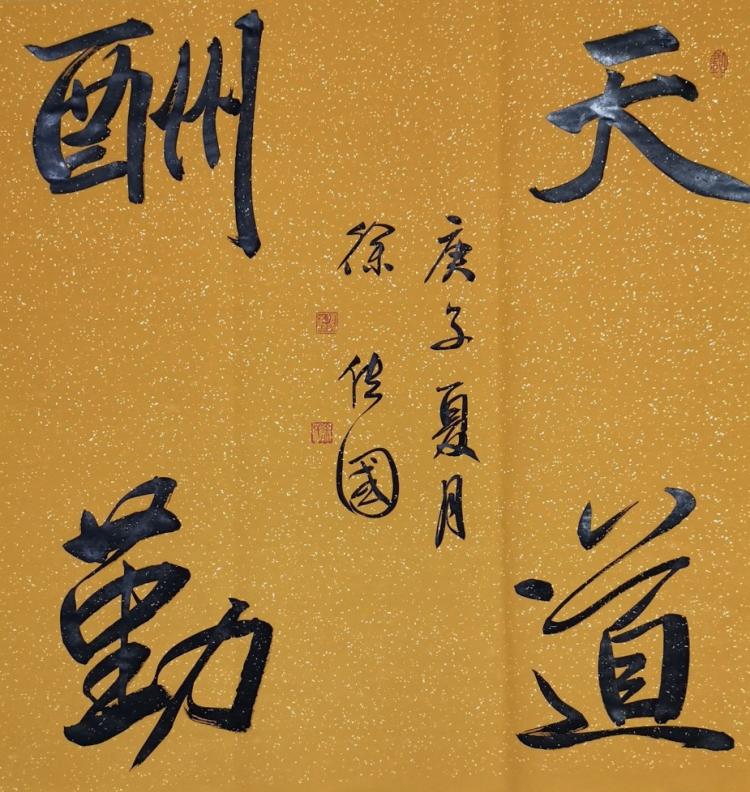 天道
酬勤
庚子夏月
徐國